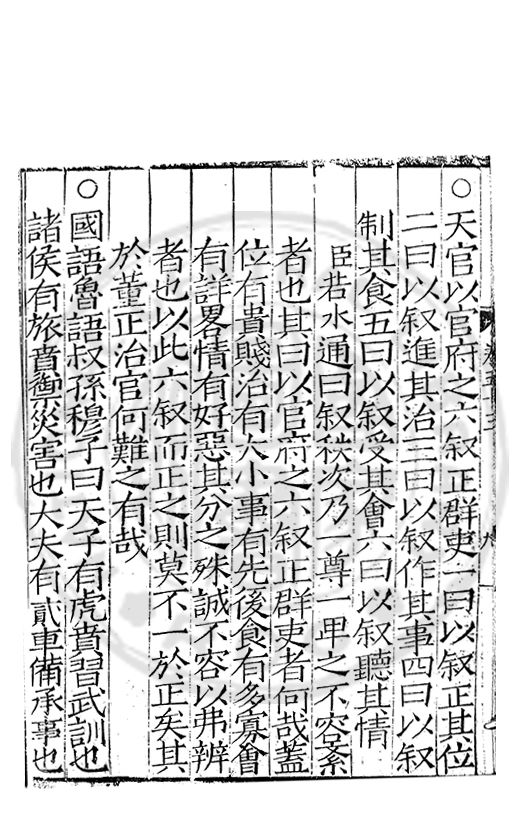 ○天官以官府之六叙正群吏一曰以叙正其位
二曰以叙進其治三曰以叙作其事四曰以叙
制其食五曰以叙受其會六曰以叙聽其情
臣若水通曰叙秩次乃一尊一卑之不容紊
者也其曰以官府之六叙正群吏者何哉蓋
位有貴賤治有大小事有先後食有多寡會
有詳畧情有好惡其分之殊誠不容以弗辨
者也以此六叙而正之則莫不一於正矣其
於董正治官何難之有哉
○國語魯語叔孫穆子曰天子有虎賁習武訓也
諸侯有旅賁禦災害也大夫有貳車備承事也